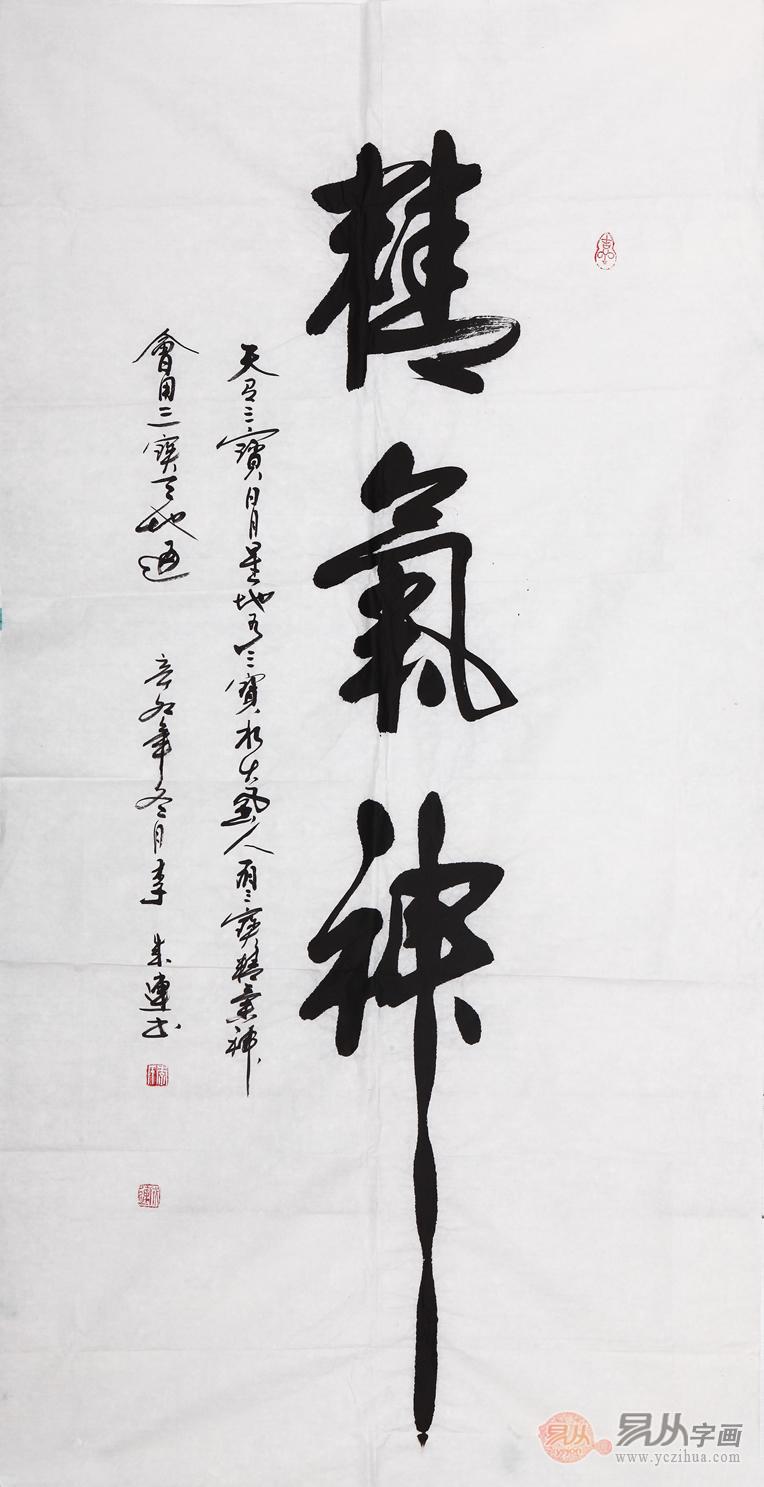 精氣神
天有三寶日月星地有三寶水火風人有三寶精氣神
會用三寶天地通 辛卯年冬月李成連书
易从
易从字画
www.yczihua.com